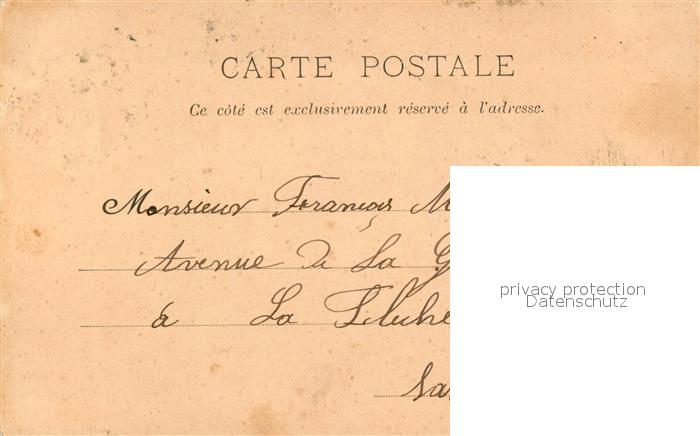 CARTE POSTALE
Ce côté est exclusivement réservé à l'adresse.
Monsieur François M
Avenue de La G
privacy protection
Datenschutz
à La Flèche
Sa